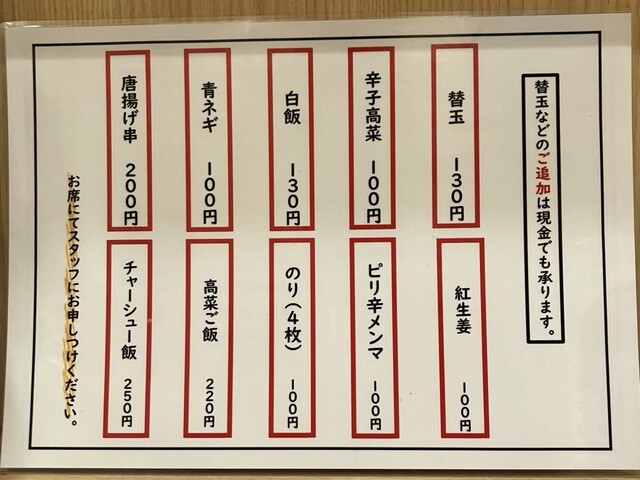 替玉などのご追加は現金でも承ります。
替玉 130円
辛子高菜 100円
白飯 130円
青ネギ 100円
唐揚げ串 200円
紅生姜 100円
ピリ辛メンマ 100円
のり(4枚) 100円
高菜ご飯 220円
チャーシュー飯 250円
お席にてスタッフにお申しつけください。